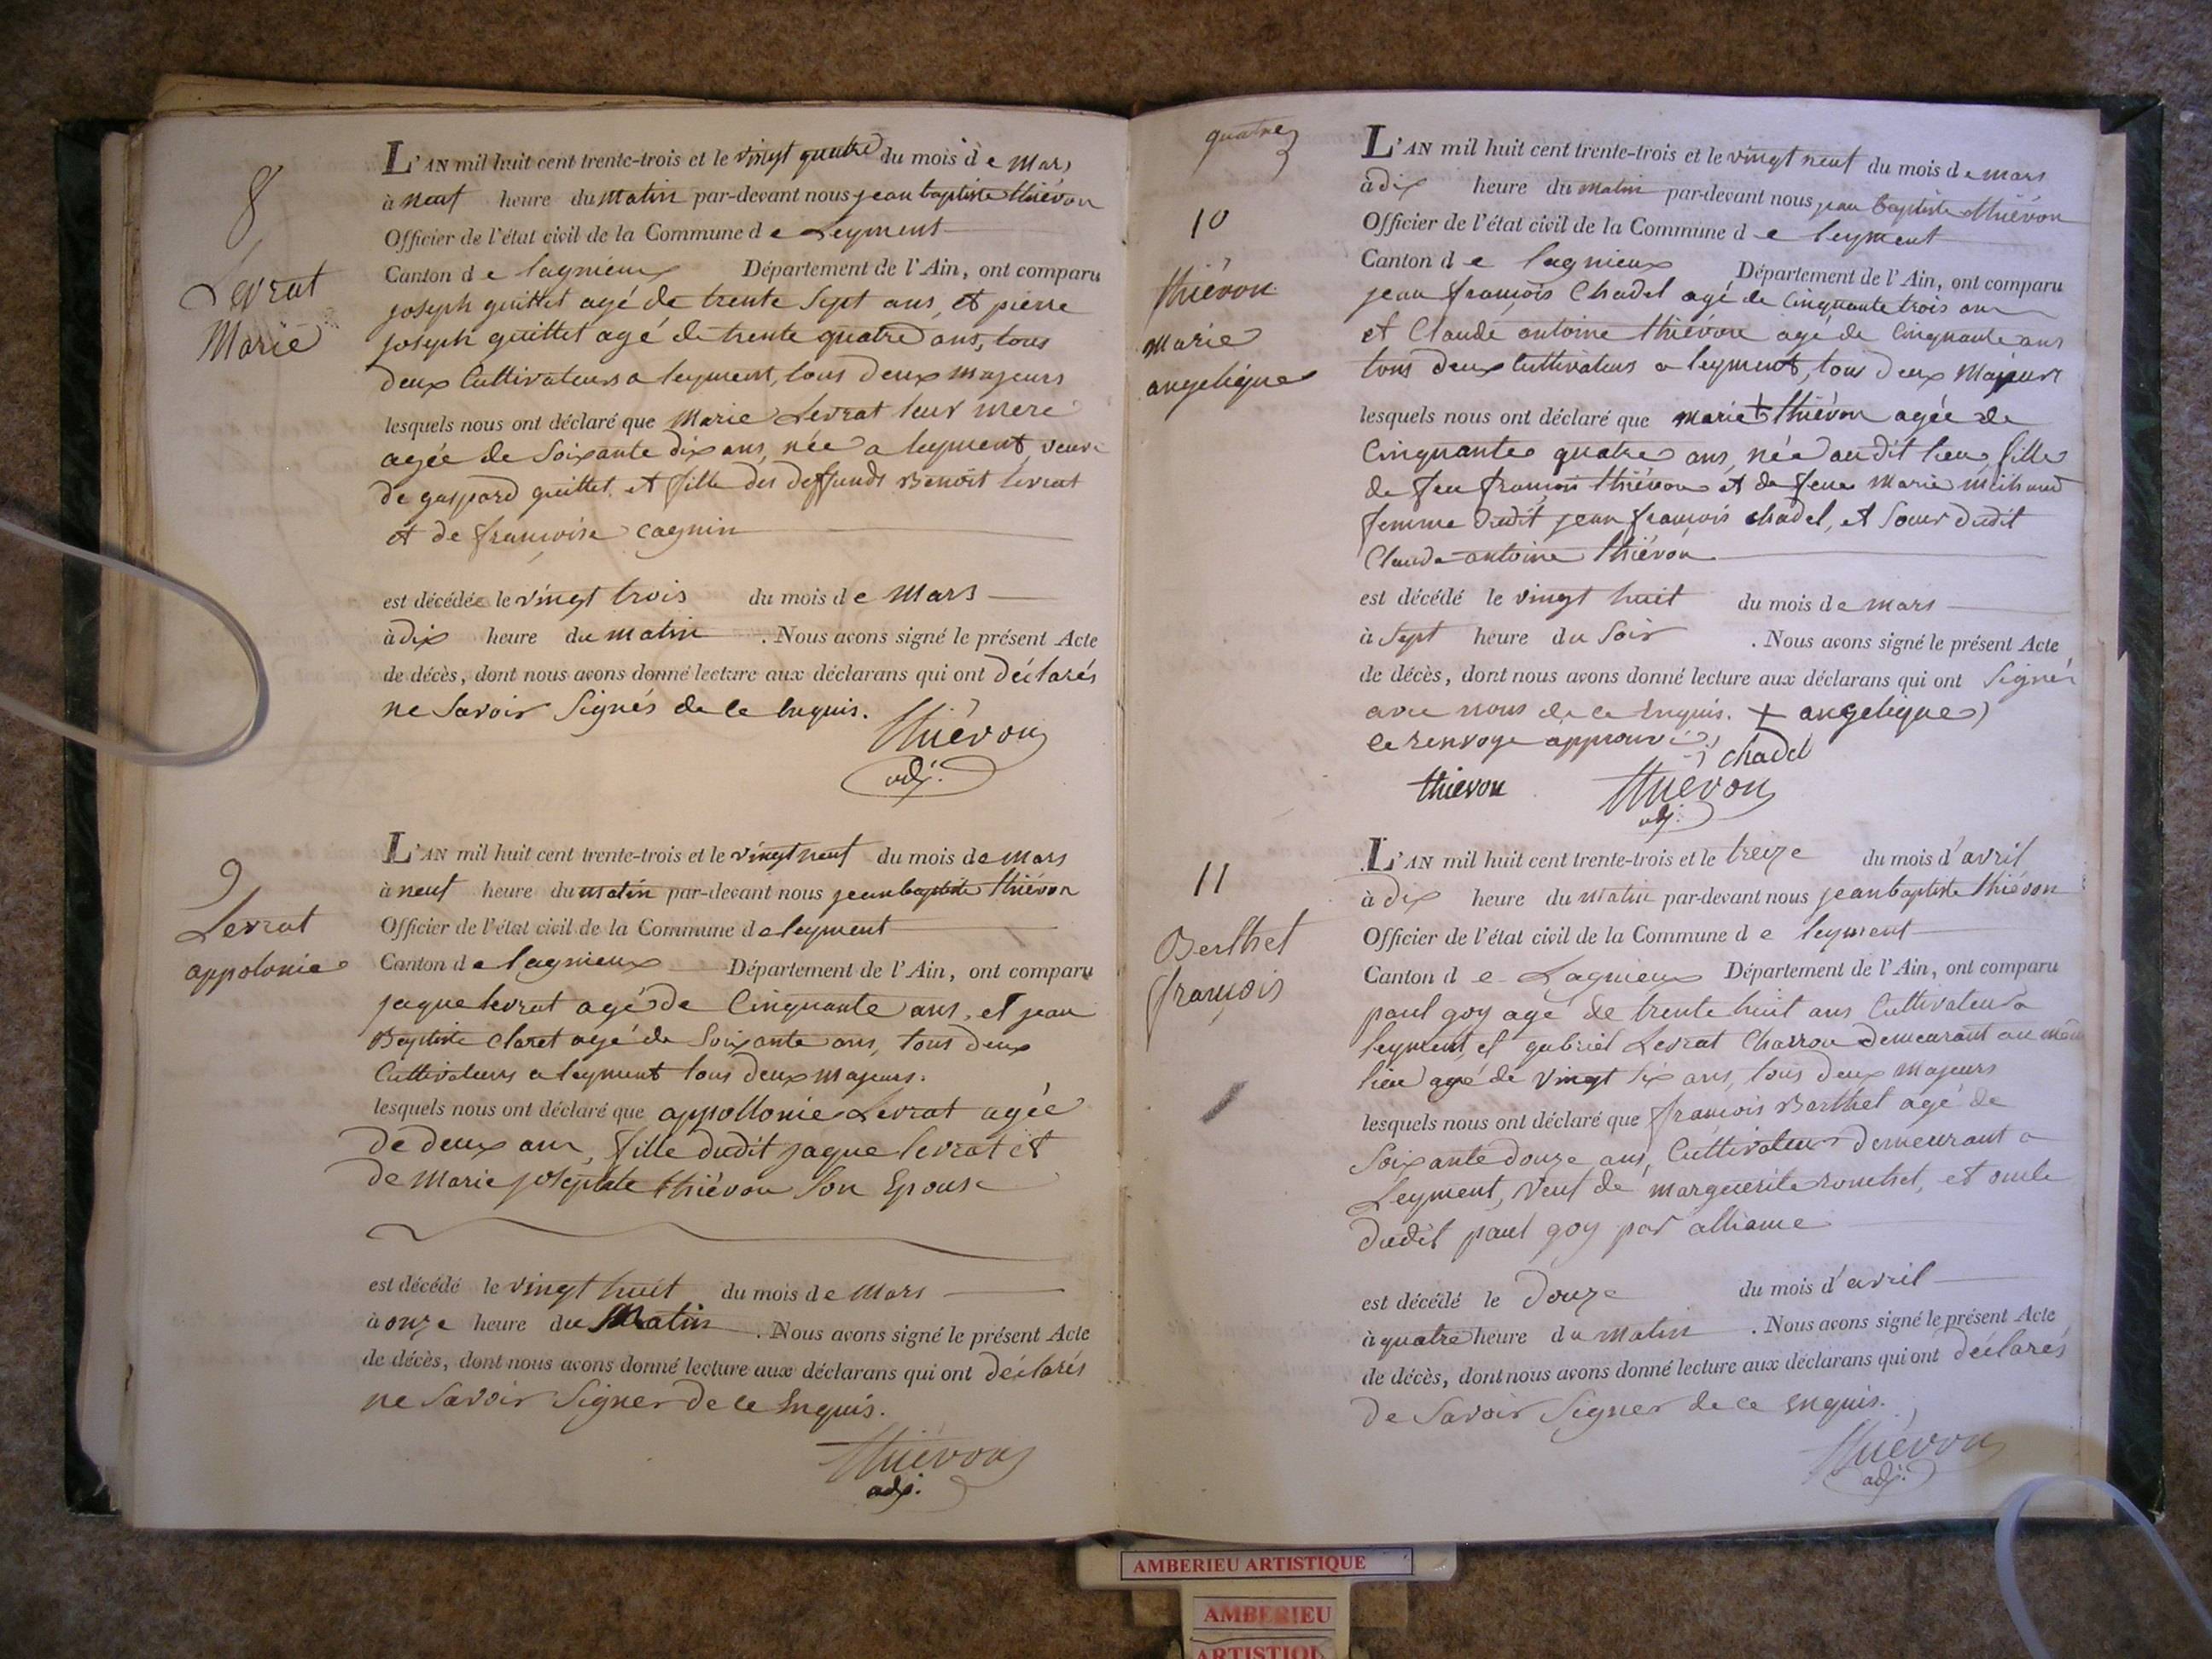 8
Levrat
Marie
L'AN mil huit cent trente-trois et le vingt quatre du mois de Mars
à neuf heure du matin par-devant nous jean baptiste thiévon
Officier de l'état civil de la Commune de Leyment
Canton de lagnieux Département de l'Ain, ont comparu
joseph guittet agé de trente Sept ans, et pierre
joseph guittet agé de trente quatre ans, tous
deux Cultivateurs a leyment, tous deux majeurs
lesquels nous ont déclaré que Marie Levrat leur mere
agée de Soixante dix ans, née a leyment, veuve
de gaspard guittet et fille des deffunds Benoit levrat
et de françoise cagnin
est décédée le vingt trois du mois de Mars
à dix heure du matin . Nous avons signé le présent Acte
de décès, dont nous avons donné lecture aux déclarans qui ont déclarés
ne Savoir Signés de ce Enquis.
thiévon
adj.
9
Levrat
appolonie
L'AN mil huit cent trente-trois et le vingt neuf du mois de mars
à neuf heure du matin par-devant nous jean baptiste thiévon
Officier de l'état civil de la Commune de leyment
Canton de lagnieux Département de l'Ain, ont comparu
jaque levrat agé de Cinquante ans, et jean
Baptiste Claret agé de Soixante ans, tous deux
Cultivateurs a leyment tous deux majeurs.
lesquels nous ont déclaré que appollonie Levrat agée
de deux ans, fille dudit jaque levrat et
de Marie josephte thiévon Son Epouse
est décédé le vingt huit du mois de Mars
à onze heure du Matin . Nous avons signé le présent Acte
de décès, dont nous avons donné lecture aux déclarans qui ont déclarés
ne Savoir Signer de ce Enquis.
thiévon
adj.
quatre
10
thiévon
marie
angelique
L'AN mil huit cent trente-trois et le vingt neuf du mois de mars
à dix heure du matin par-devant nous jean baptiste thiévon
Officier de l'état civil de la Commune de leyment
Canton de lagnieux Département de l'Ain, ont comparu
jean françois Chadel agé de Cinquante trois ans
et Claude antoine thiévon agé de Cinquante ans
tous deux Cultivateurs a leyment, tous deux Majeurs
lesquels nous ont déclaré que marie + thiévon agée de
Cinquante quatre ans, née audit lieu fille
de feu françois thiévon et de feue Marie
femme dudit jean françois chadel, et Sœur dudit
Claude antoine thiévon
est décédé le vingt huit du mois de mars
à Sept heure du Soir . Nous avons signé le présent Acte
de décès, dont nous avons donné lecture aux déclarans qui ont Signés
avec nous de ce Enquis. + angelique
le renvoye approuvé
chadel
thievon thiévon
adj.
11
Berthet
françois
L'AN mil huit cent trente-trois et le treize du mois d'avril
à dix heure du matin par-devant nous jean baptiste thiévon
Officier de l'état civil de la Commune de leyment
Canton de Lagnieux Département de l'Ain, ont comparu
paul goy agé de trente huit ans Cultivateur a
leyment et gabriel Levrat Charron demeurant au même
lieu agé de vingt six ans, tous deux majeurs
lesquels nous ont déclaré que françois Berthet agé de
Soixante douze ans, Cultivateur demeurant a
Leyment, veuf de marguerite ronchet, et oncle
dudit paul goy par alliance
est décédé le douze du mois d'avril
à quatre heure du matin . Nous avons signé le présent Acte
de décès, dont nous avons donné lecture aux déclarans qui ont déclarés
de Savoir Signer de ce Enquis.
thiévon
adj.
AMBERIEU ARTISTIQUE
AMBERIEU
ARTISTIQ